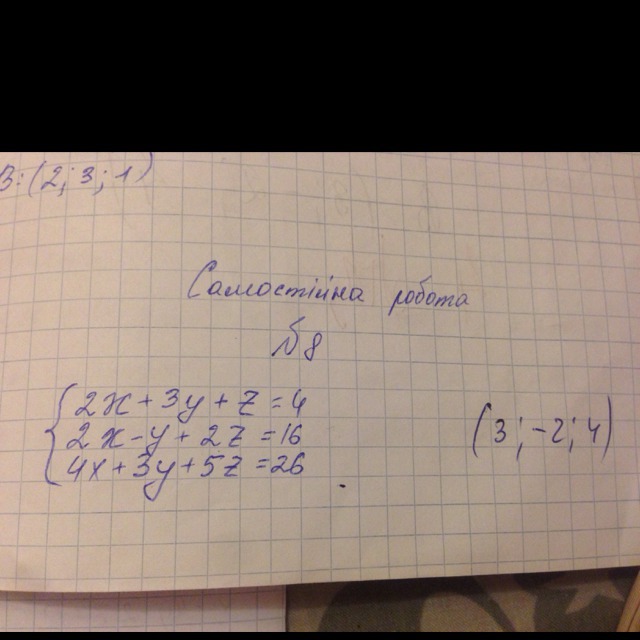 В: (2; 3; 1)
Самостійна робота
№8
2x + 3y + z = 4
2x - y + 2z = 16
4x + 3y + 5z = 26
(3; -2; 4)